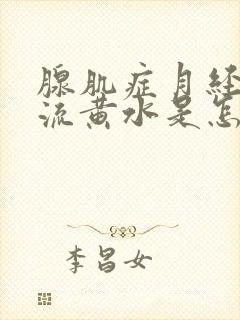 腺肌症月经
流黄水是怎
李昌女